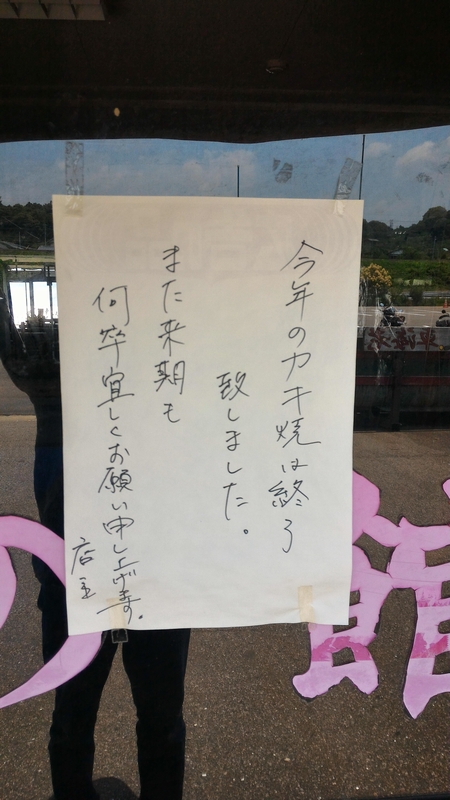 今年のカキ焼は終了
致しました。
また来期も
何卒宜しくお願い申し上げます。
店主
の
館